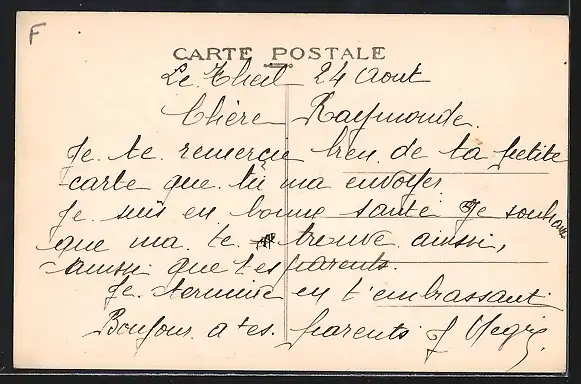 F
CARTE POSTALE
Le Theil 24 Aout
Chère Raymonde
Je te remercie bien de ta petite
carte que tu ma envoyer
Je suis en bonne santé Je souhaite
que ma te trouve ainssi,
ainssi que tes parents.
Je termine en t'embrassant
Bonjour a tes parents J